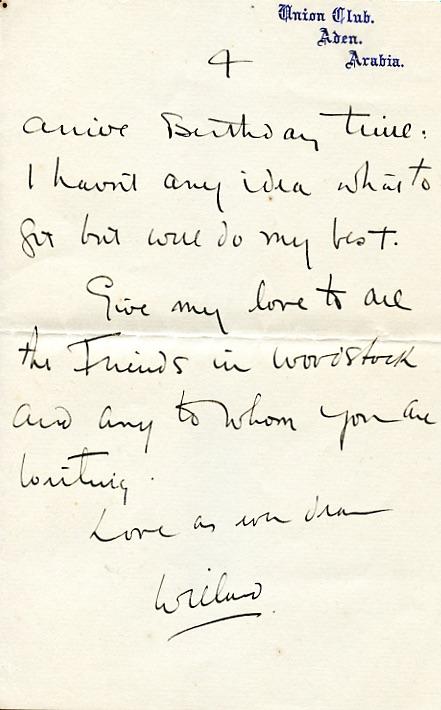 Union Club.
Aden.
Arabia.
4
arrive Birthday time.
I havn't any idea what to
get but will do my best.
Give my love to all
the Friends in Woodstock
and any to whom you are
writing.
Love as ever dear
Willard